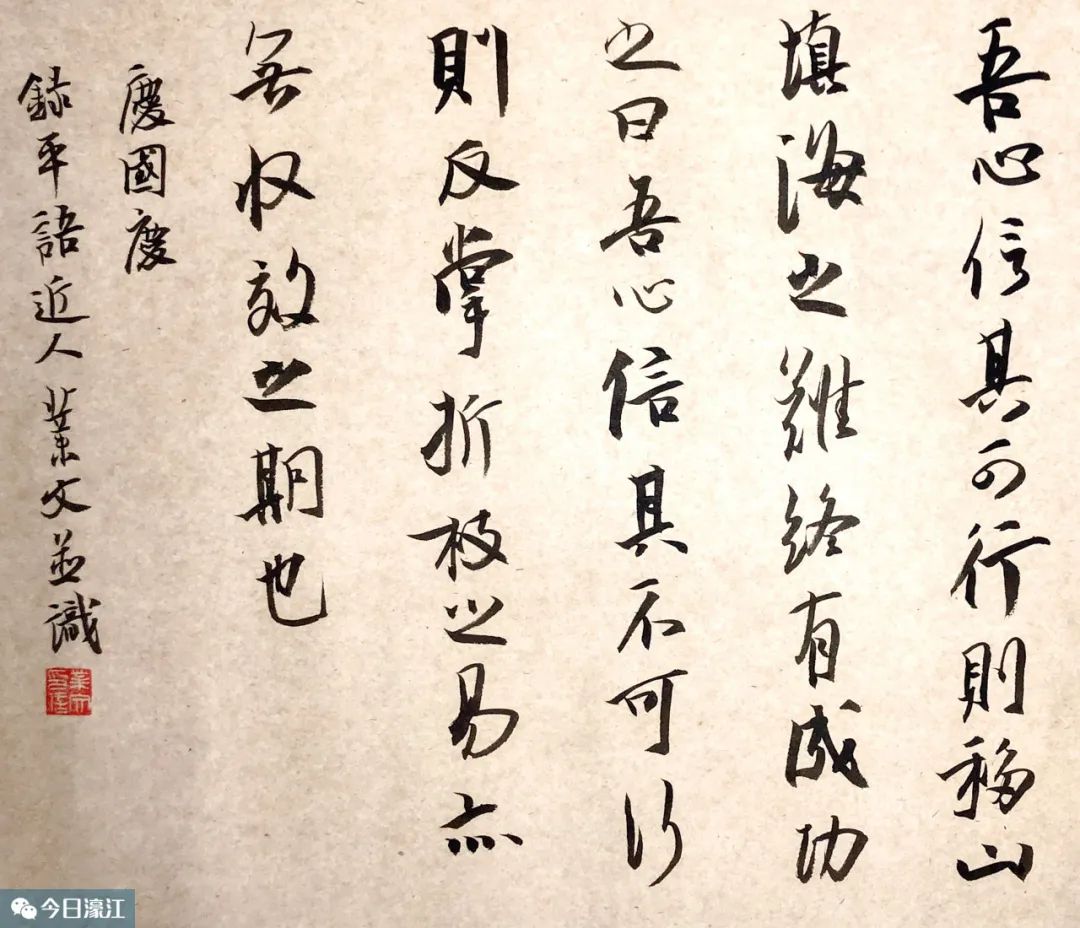 吾心信其可行則移山
填海之難終有成功
之日吾心信其不可行
則反掌折枝之易亦
無收效之期也
慶國慶
錄平語近人業文並識
今日濠江